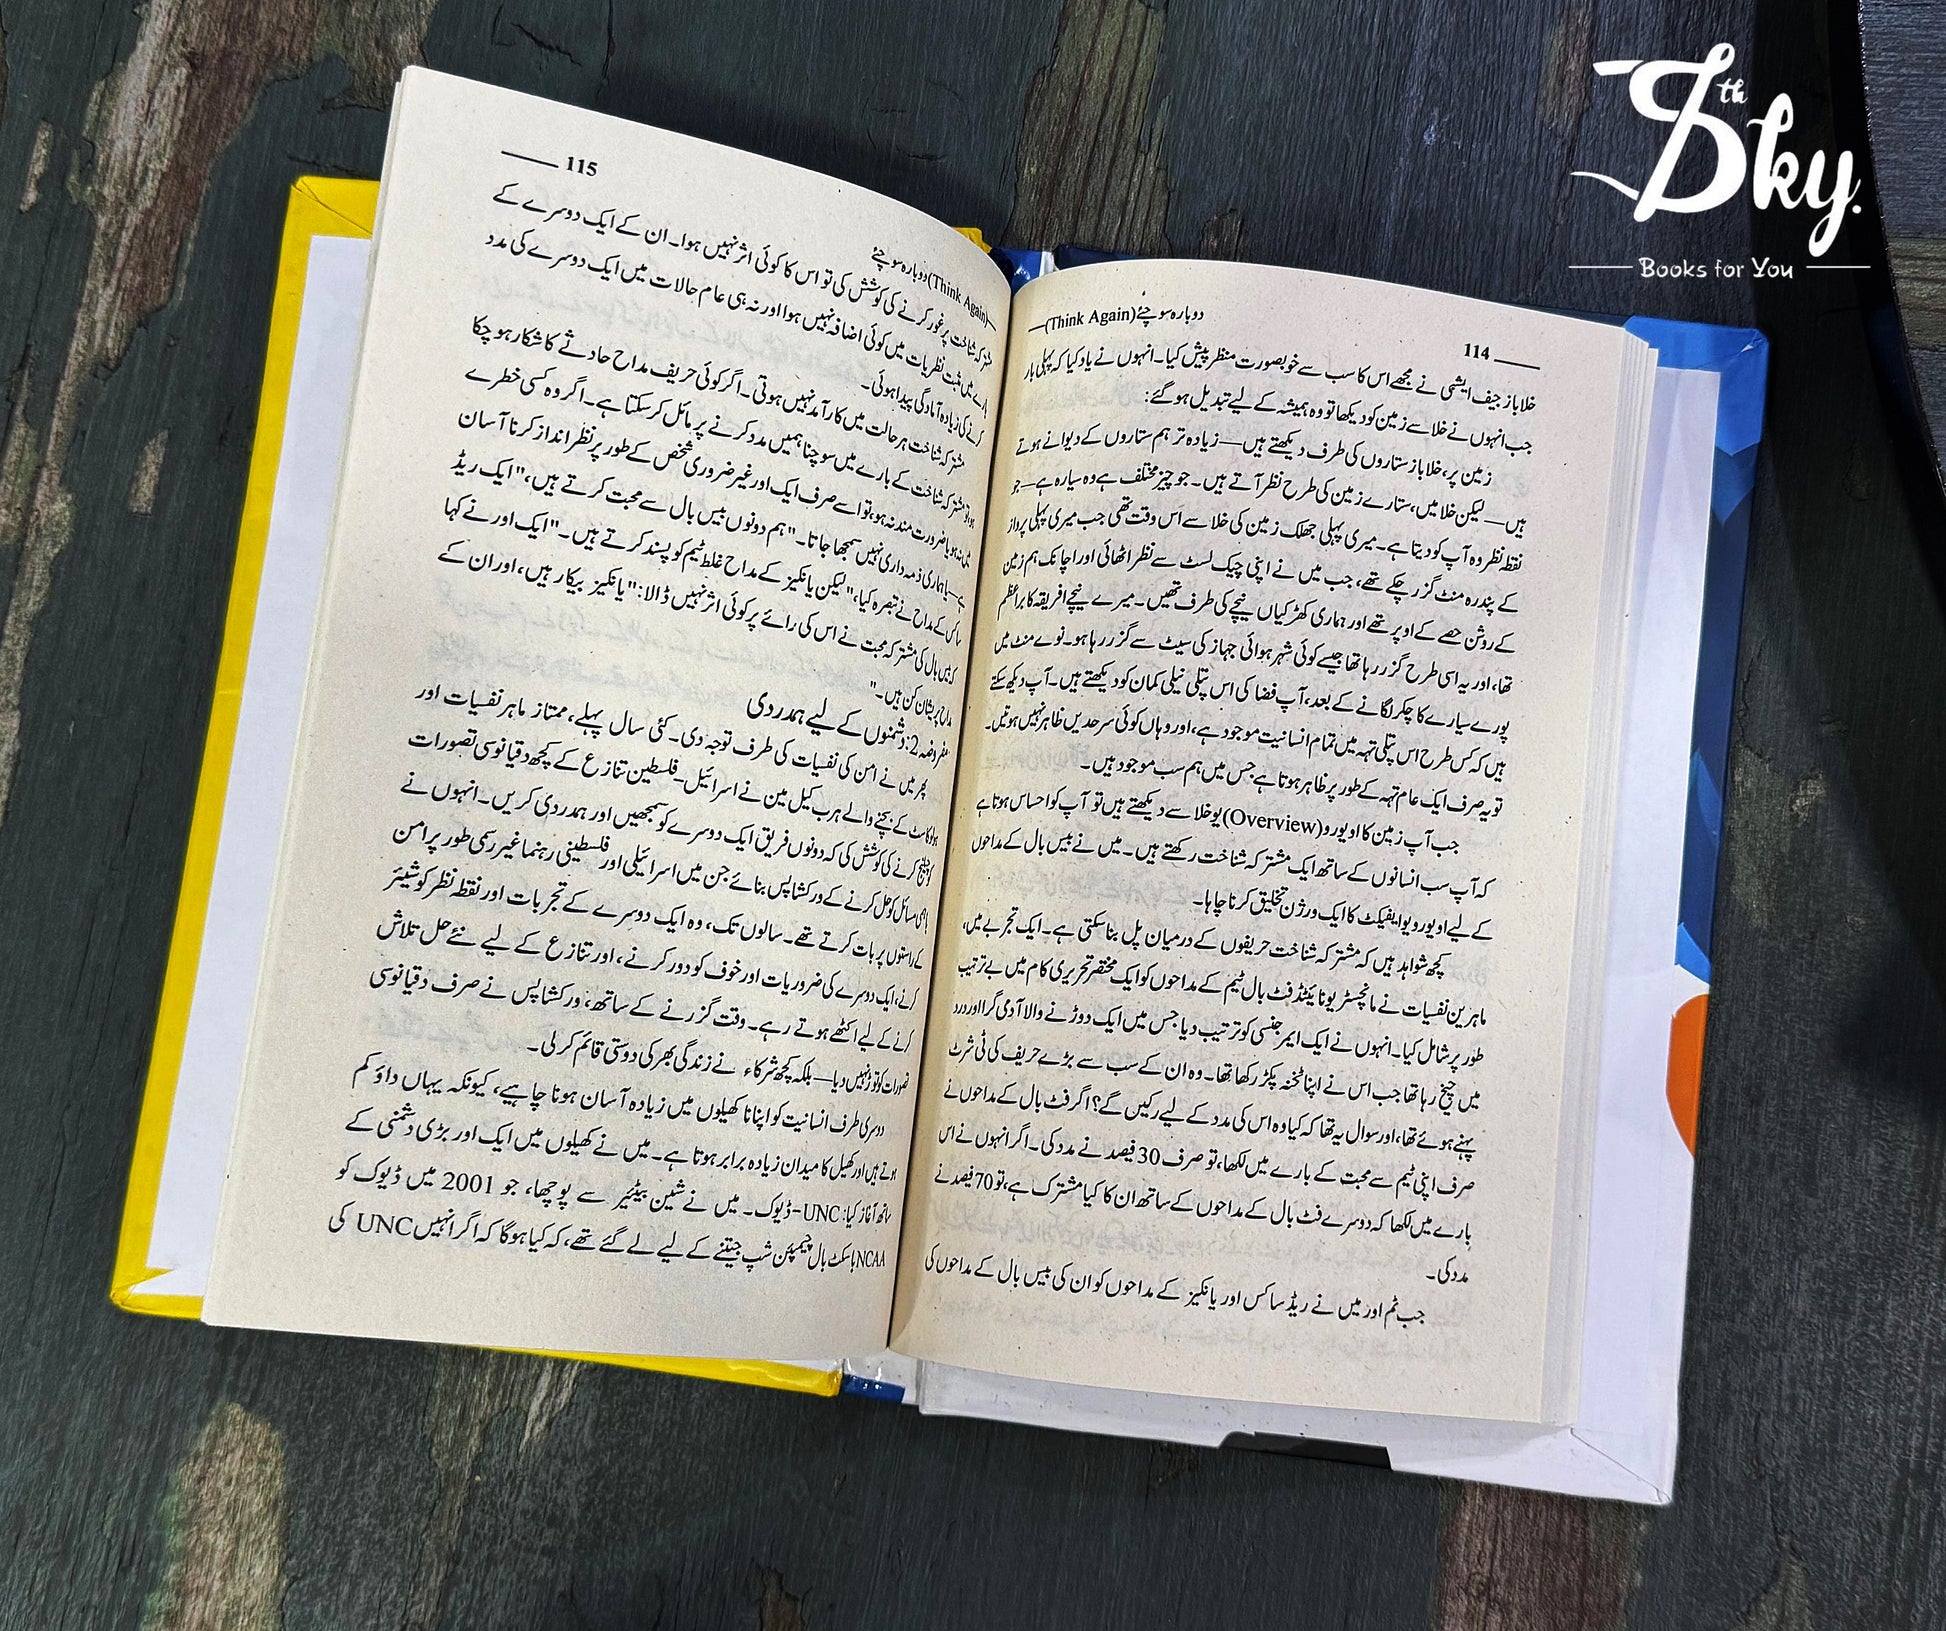 7th Sky.
Books for You
114
دوبارہ سوچئے (Think Again)
خلاباز جیف ایشبی نے مجھے اس کا سب سے خوبصورت منظر پیش کیا۔ انہوں نے یاد کیا کہ پہلی بار
جب انہوں نے خلا سے زمین کو دیکھا تو وہ ہمیشہ کے لیے تبدیل ہو گئے:
زمین پر، خلاباز ستاروں کی طرف دیکھتے ہیں—زیادہ تر ہم ستاروں کے دیوانے ہوتے
ہیں—لیکن خلا میں، ستارے زمین کی طرح نظر آتے ہیں۔ جو چیز مختلف ہے وہ سیارہ ہے—جو
نقطہ نظر وہ آپ کو دیتا ہے۔ میری پہلی جھلک زمین کی خلا سے اس وقت تھی جب میری پہلی پرواز
کے پندرہ منٹ گزر چکے تھے، جب میں نے اپنی چیک لسٹ سے نظر اٹھائی اور اچانک ہم زمین
کے روشن حصے کے اوپر تھے اور ہماری کھڑکیاں نیچے کی طرف تھیں۔ میرے نیچے افریقہ کا براعظم
تھا، اور یہ اسی طرح گزر رہا تھا جیسے کوئی شہر ہوائی جہاز کی سیٹ سے گزر رہا ہو۔ نوے منٹ میں
پورے سیارے کا چکر لگانے کے بعد، آپ فضا کی اس پتلی نیلی کمان کو دیکھتے ہیں۔ آپ دیکھ سکتے
ہیں کہ کس طرح اس پتلی تہہ میں تمام انسانیت موجود ہے، اور وہاں کوئی سرحدیں ظاہر نہیں ہوتیں۔
تو یہ صرف ایک عام تہہ کے طور پر ظاہر ہوتا ہے جس میں ہم سب موجود ہیں۔
جب آپ زمین کا اوورو (Overview) یو خلا سے دیکھتے ہیں تو آپ کو احساس ہوتا ہے
کہ آپ سب انسانوں کے ساتھ ایک مشترکہ شناخت رکھتے ہیں۔ میں نے بیس بال کے مداحوں
کے لیے اوورویو ایفیکٹ کا ایک ورژن تخلیق کرنا چاہا۔
کچھ شواہد ہیں کہ مشترکہ شناخت حریفوں کے درمیان پل بنا سکتی ہے۔ ایک تجربے میں،
ماہرین نفسیات نے مانچسٹر یونائیٹڈ فٹ بال ٹیم کے مداحوں کو ایک مختصر تحریری کام میں بے ترتیب
طور پر شامل کیا۔ انہوں نے ایک ایمرجنسی کو ترتیب دیا جس میں ایک دوڑنے والا آدمی گرا اور درد
میں چیخ رہا تھا جب اس نے اپنا ٹخنہ پکڑ رکھا تھا۔ وہ ان کے سب سے بڑے حریف کی ٹی شرٹ
پہنے ہوئے تھا، اور سوال یہ تھا کہ کیا وہ اس کی مدد کے لیے رکیں گے؟ اگر فٹ بال کے مداحوں نے
صرف اپنی ٹیم سے محبت کے بارے میں لکھا، تو صرف 30 فیصد نے مدد کی۔ اگر انہوں نے اس
بارے میں لکھا کہ دوسرے فٹ بال کے مداحوں کے ساتھ ان کا کیا مشترک ہے، تو 70 فیصد نے
مدد کی۔
جب ٹم اور میں نے ریڈ ساکس اور یانکیز کے مداحوں کو ان کی بیس بال کے مداحوں کی
115
(Think Again) دوبارہ سوچئے
مشترکہ شناخت پر غور کرنے کی کوشش کی تو اس کا کوئی اثر نہیں ہوا۔ ان کے ایک دوسرے کے
بارے میں مثبت نظریات میں کوئی اضافہ نہیں ہوا اور نہ ہی عام حالات میں ایک دوسرے کی مدد
کرنے کی زیادہ آمادگی پیدا ہوئی۔
مشترکہ شناخت ہر حالت میں کارآمد نہیں ہوتی۔ اگر کوئی حریف مداح حادثے کا شکار ہو چکا
ہو، تو مشترکہ شناخت کے بارے میں سوچنا ہمیں مدد کرنے پر مائل کر سکتا ہے۔ اگر وہ کسی خطرے
میں نہ ہو یا ضرورت مند نہ ہو، تو اسے صرف ایک اور غیر ضروری شخص کے طور پر نظر انداز کرنا آسان
ہے—یا ہماری ذمہ داری نہیں سمجھا جاتا۔ "ہم دونوں بیس بال سے محبت کرتے ہیں،" ایک ریڈ
ساکس کے مداح نے تبصرہ کیا، "لیکن یانکیز کے مداح غلط ٹیم کو پسند کرتے ہیں۔" ایک اور نے کہا
کہ بیس بال کی مشترکہ محبت نے اس کی رائے پر کوئی اثر نہیں ڈالا: "یانکیز بیکار ہیں، اور ان کے
مداح پریشان کن ہیں۔"
مفروضہ 2: دشمنوں کے لیے ہمدردی
پھر میں نے امن کی نفسیات کی طرف توجہ دی۔ کئی سال پہلے، ممتاز ماہر نفسیات اور
ہولوکاسٹ کے بچنے والے ہرب کیل مین نے اسرائیل-فلسطین تنازع کے کچھ دقیانوسی تصورات
کو چیلنج کرنے کی کوشش کی کہ دونوں فریق ایک دوسرے کو سمجھیں اور ہمدردی کریں۔ انہوں نے
باہمی مسائل کو حل کرنے کے ورکشاپس بنائے جن میں اسرائیلی اور فلسطینی رہنما غیر رسمی طور پر امن
کے راستوں پر بات کرتے تھے۔ سالوں تک، وہ ایک دوسرے کے تجربات اور نقطہ نظر کو شیئر
کرنے، ایک دوسرے کی ضروریات اور خوف کو دور کرنے، اور تنازع کے لیے نئے حل تلاش
کرنے کے لیے اکٹھے ہوتے رہے۔ وقت گزرنے کے ساتھ، ورکشاپس نے صرف دقیانوسی
تصورات کو توڑ نہیں دیا—بلکہ کچھ شرکاء نے زندگی بھر کی دوستی قائم کر لی۔
دوسری طرف انسانیت کو اپنانا کھیلوں میں زیادہ آسان ہونا چاہیے، کیونکہ یہاں داؤ کم
ہوتے ہیں اور کھیل کا میدان زیادہ برابر ہوتا ہے۔ میں نے کھیلوں میں ایک اور بڑی دشمنی کے
ساتھ آغاز کیا: UNC-ڈیوک۔ میں نے شین بیٹئیر سے پوچھا، جو 2001 میں ڈیوک کو
NCAA باسکٹ بال چیمپئن شپ جیتنے کے لیے لے گئے تھے، کہ کیا ہوگا کہ اگر انہیں UNC کی